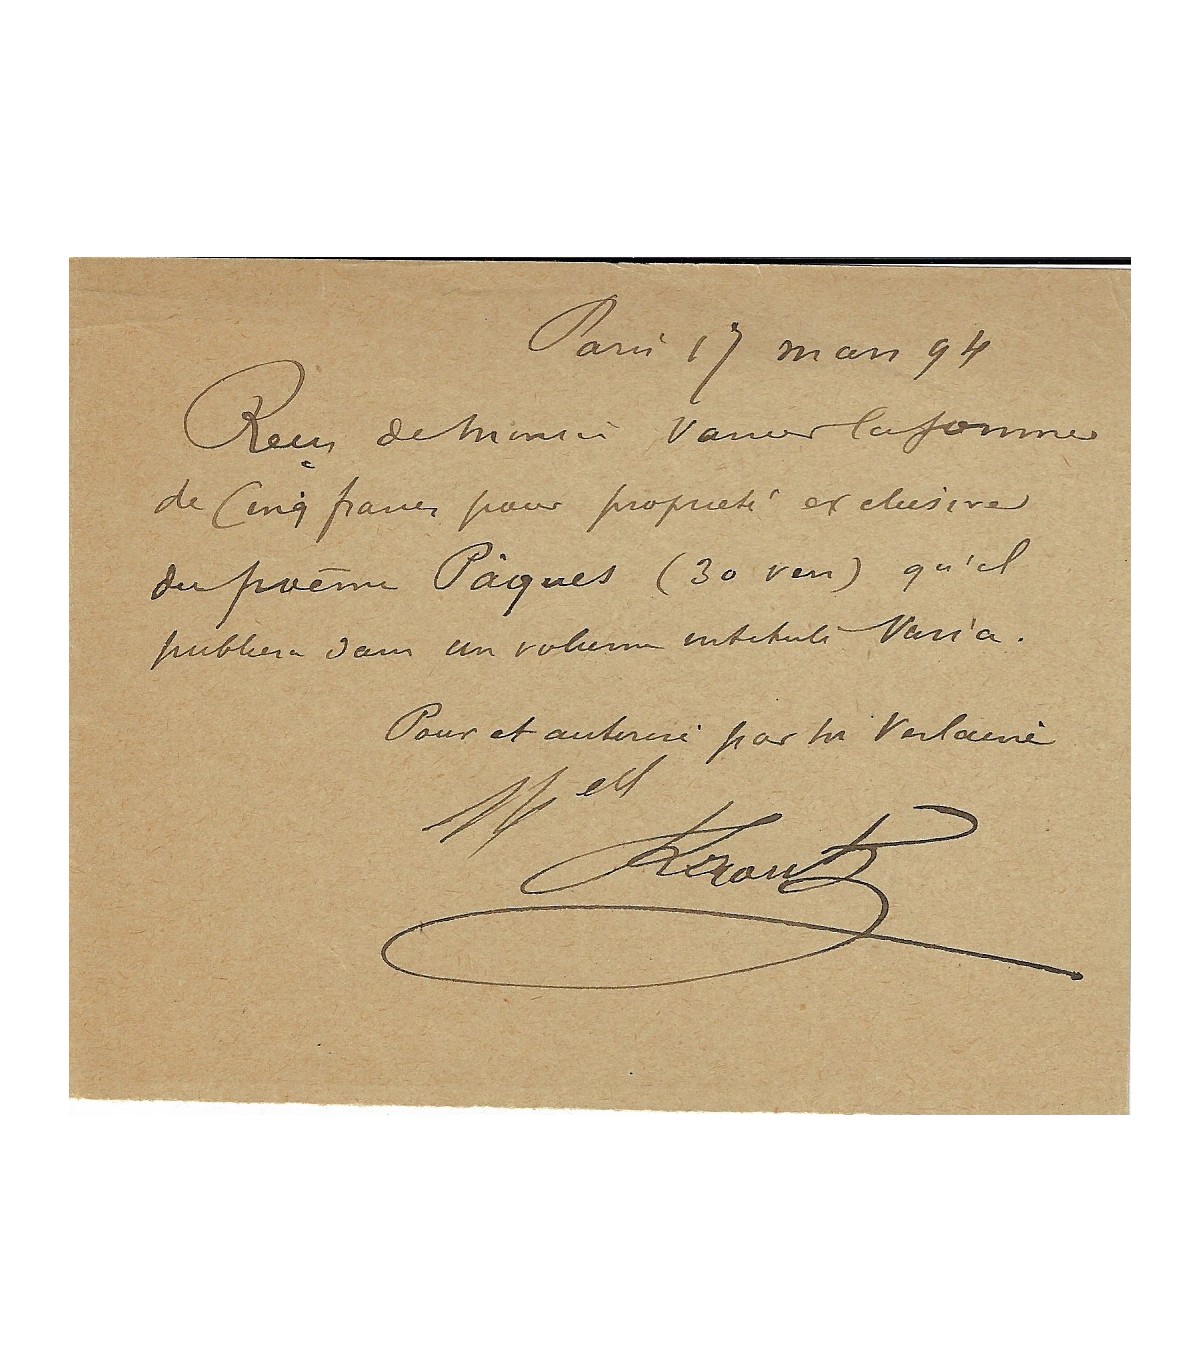 Paris 17 mars 94
Reçu de Monsieur Vanier la somme
de Cinq francs pour propriété exclusive
du poème Pâques (30 vers) qu'il
publiera dans un volume intitulé Varia.
Pour et autorisé par M Verlaine
Melle
Krantz